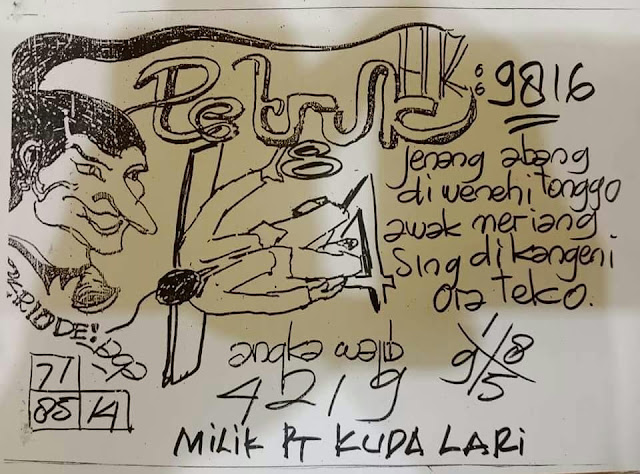 Petruk HK: 9816
66
8
jenang abang
diwenehi tonggo
awak meriang
Sing dikangeni
Ora teko.
4
PERIODE:
71
85 14
angka wajib
4219
1
9 8
5
MILIK PT KUDA LARI